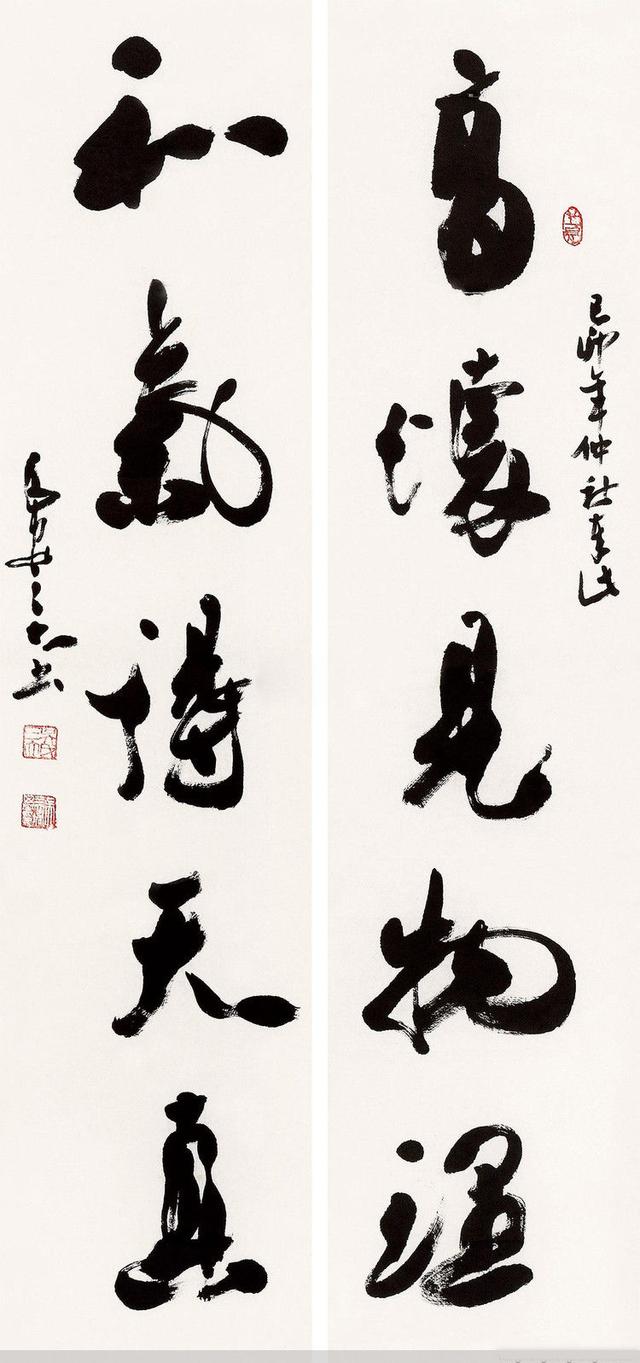 高懷見物理
己卯年仲秋
和氣得天真